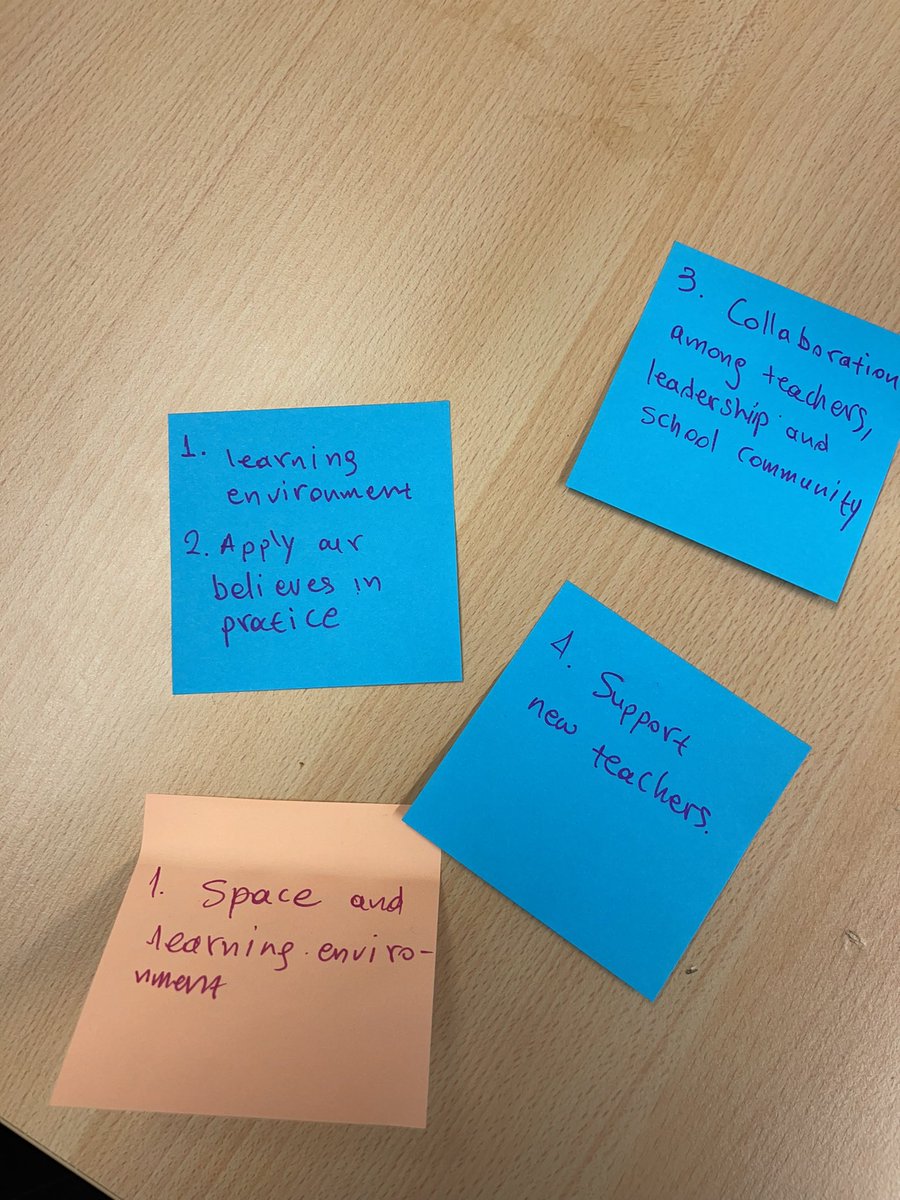 1. learning
environment
2. Apply our
believes in
practice
3. Collaboration
among teachers,
leadership and
school community
4. Support
new teachers.
1. Space and
learning enviro-
nment